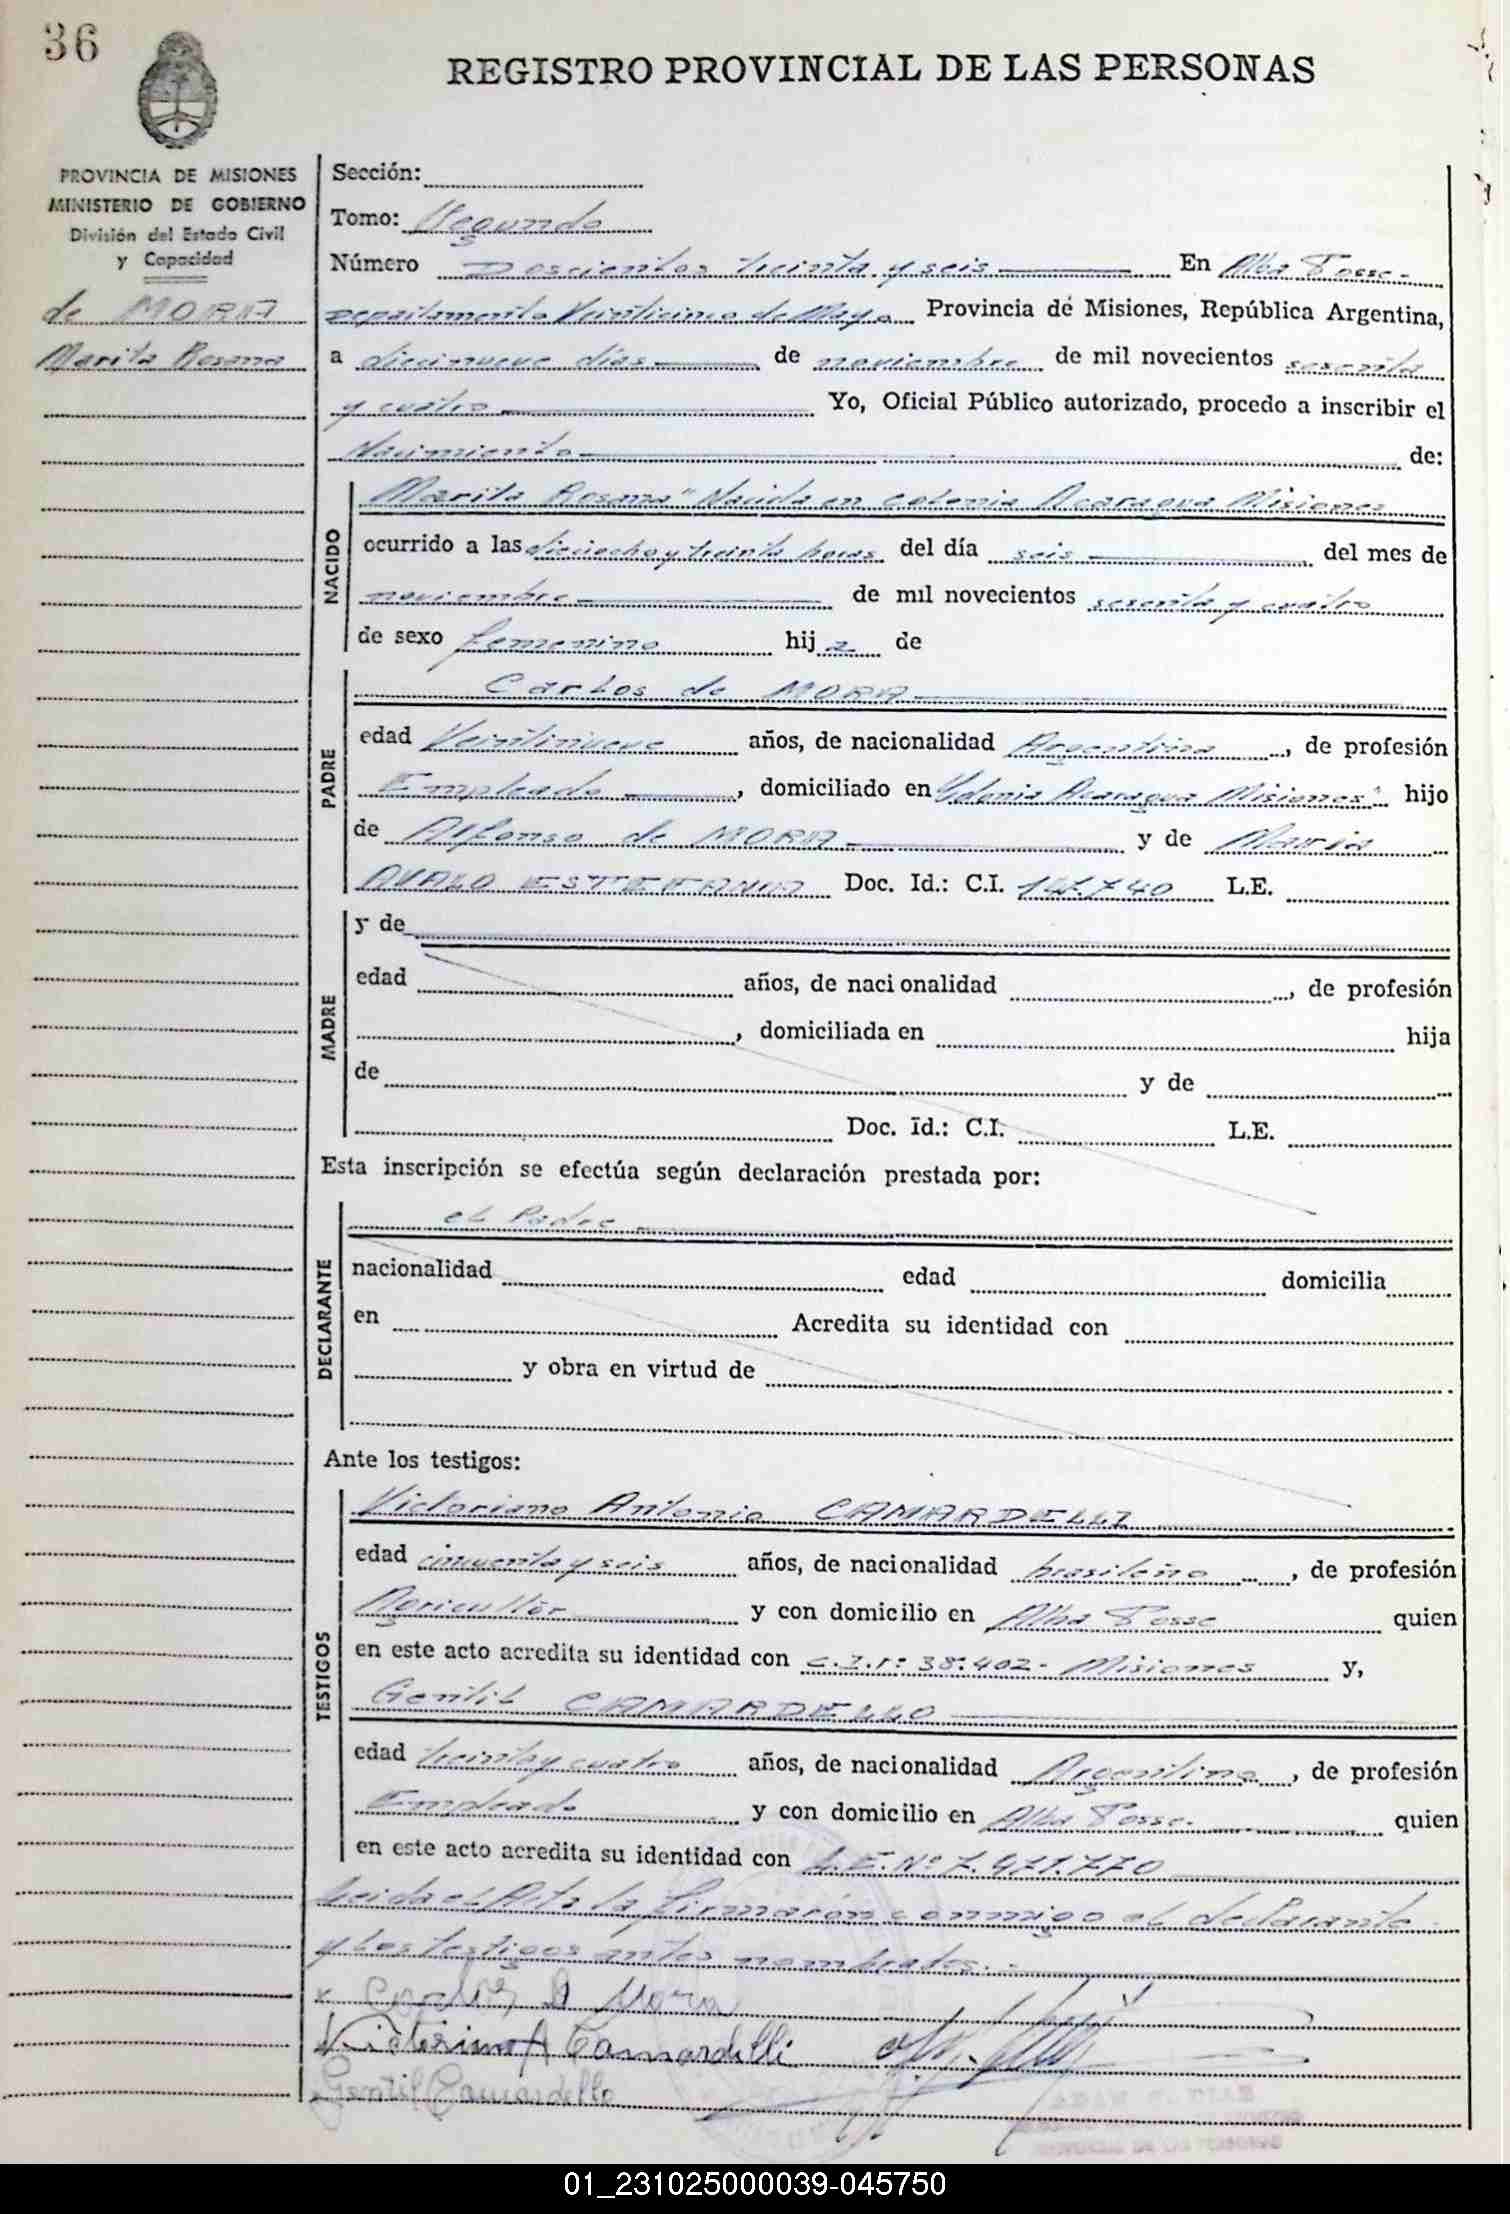 36
REGISTRO PROVINCIAL DE LAS PERSONAS
PROVINCIA DE MISIONES
MINISTERIO DE GOBIERNO
División del Estado Civil
y Capacidad
de MORA
Marita Rosana
Sección:
Tomo: Segundo
Número Doscientos treinta y seis En Alba Posse-
Departamento Veinticinco de Mayo Provincia de Misiones, República Argentina,
a diecinueve días de noviembre de mil novecientos sesenta
y cuatro Yo, Oficial Público autorizado, procedo a inscribir el
Nacimiento de:
NACIDO
Marita Rosana" Nacida en colonia Acaragua Misiones
ocurrido a las dieciocho y treinta horas del día seis del mes de
noviembre de mil novecientos sesenta y cuatro
de sexo femenino hija de
PADRE
Carlos de MORA
edad Veintinueve años, de nacionalidad Argentina, de profesión
Empleado, domiciliado en Colonia Acaragua Misiones" hijo
de Alfonso de MORA y de Maria
AVALO ESTEFANIA Doc. Id.: C.I. 147.740 L.E.
MADRE
y de
edad años, de nacionalidad , de profesión
, domiciliada en hija
de y de
Doc. Id.: C.I. L.E.
Esta inscripción se efectúa según declaración prestada por:
DECLARANTE
el Padre
nacionalidad edad domicilia
en Acredita su identidad con
y obra en virtud de
Ante los testigos:
TESTIGOS
Victoriano Antonio CAMARDELLI
edad cincuenta y seis años, de nacionalidad brasileño, de profesión
Agricultor y con domicilio en Alba Posse quien
en este acto acredita su identidad con C.I.Nº 38.402- Misiones y,
Gentil CAMARDELLO
edad treinta y cuatro años, de nacionalidad Argentino, de profesión
Empleado y con domicilio en Alba Posse. quien
en este acto acredita su identidad con L.E.Nº 7.471.770
Leida el Acta la firmarón conmigo el declarante
y los testigos antes nombrados.-
x Carlos D Mora
Victorino A Camardelli
Gentil Camardello
01_231025000039-045750